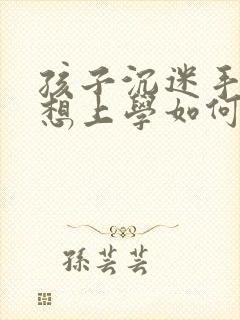 孩子沉迷手
想上學如何
孫芸芸